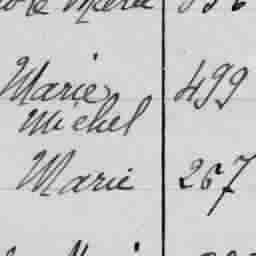 Marie 499
Michel
Marie 267